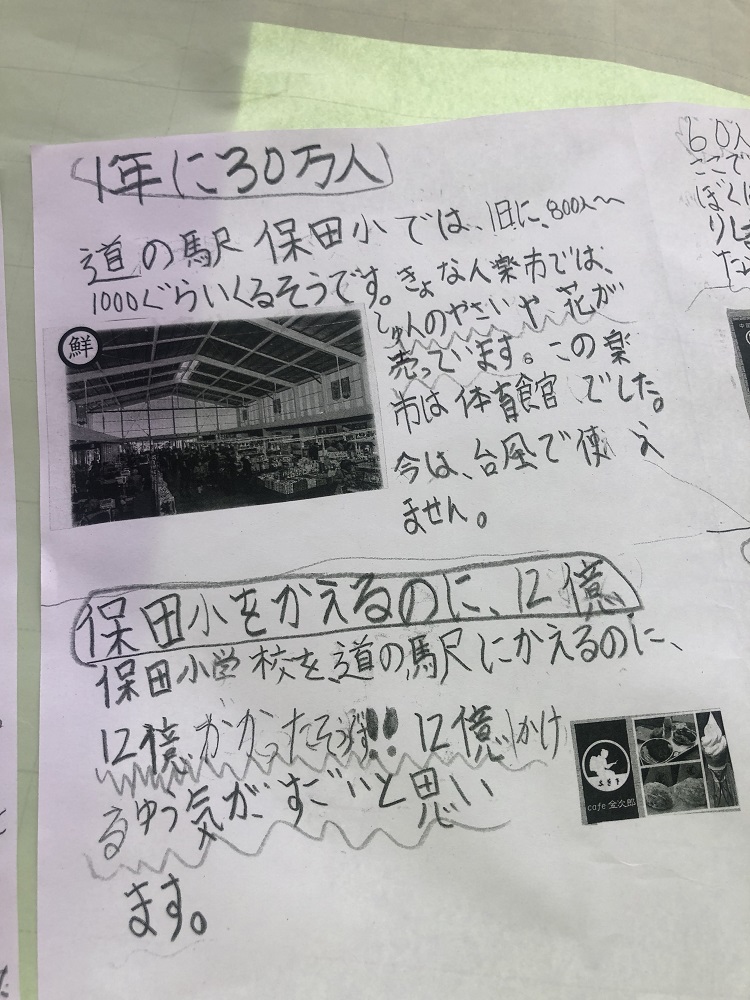 1年に30万人
道の駅 保田小では、1日に、800人〜
1000ぐらいくるそうです。きょなん楽市では、
しゅんのやさいや、花が
売っています。この楽
市は体育食官でした。
今は、台風で使え
ません。
鮮
保田小をかえるのに、12億
保田小学校を、道の馬尺にかえるのに、
12億かかったそうです!!12億かけ
るゆう気が、すごいと思い
ます。
cafe 金次郎
60人
ここで
ぼくは